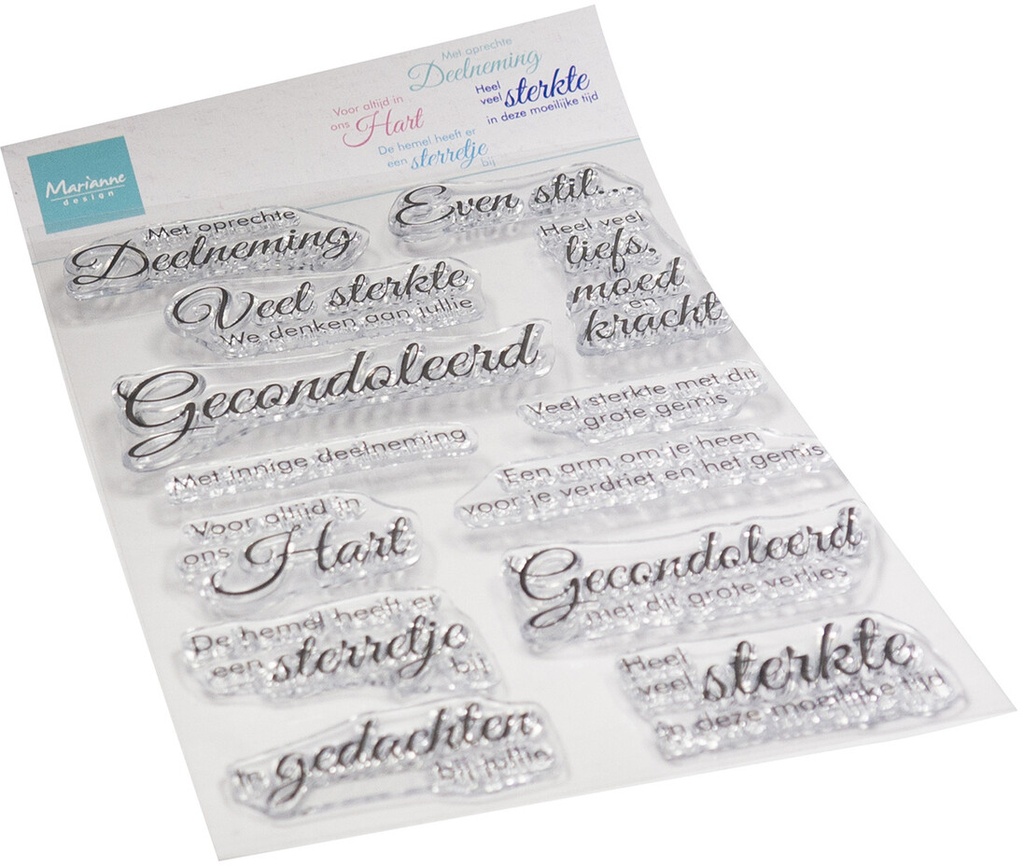 Met oprechte
Deelneming
Heel
veel sterkte
in deze moeilijke tijd
Voor altijd in
ons Hart
De hemel heeft er
een sterretje
bij
Marianne
design
Met oprechte
Deelneming
Even stil...
Veel sterkte
We denken aan jullie
Heel veel
liefs,
moed
en
kracht
Gecondoleerd
Veel sterkte met dit
grote gemis
Met innige deelneming
Een arm om je heen
voor je verdriet en het gemis
Voor altijd in
ons Hart
Gecondoleerd
met dit grote verlies
De hemel heeft er
een sterretje
bij
Heel
veel sterkte
in deze moeilijke tijd
In gedachten
bij jullie